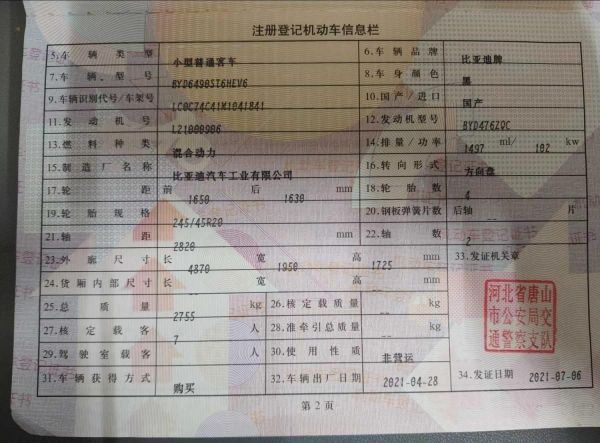 注册登记机动车信息栏
5.车辆类型 小型普通客车 6.车辆品牌 比亚迪牌
7.车辆型号 BYD6490ST6HEV6 8.车身颜色 黑
9.车辆识别代号/车架号 LC0C74C41M1041841 10.国产/进口 国产
11.发动机号 L21008906 12.发动机型号 BYD476ZQC
13.燃料种类 混合动力 14.排量/功率 1497 ml/ 102 kw
15.制造厂名称 比亚迪汽车工业有限公司 16.转向形式 方向盘
17.轮距 前 1650 后 1630 mm 18.轮胎数 4
19.轮胎规格 245/45R20 20.钢板弹簧片数 后轴 -- 片
21.轴距 2820 mm 22.轴数 2
23.外廓尺寸 长 4870 宽 1950 高 1725 mm 33.发证机关章
24.货厢内部尺寸 长 -- 宽 -- 高 -- mm
25.总质量 2755 kg 26.核定载质量 -- kg
27.核定载客 7 人 28.准牵引总质量 -- kg
29.驾驶室载客 -- 人 30.使用性质 非营运
31.车辆获得方式 购买 32.车辆出厂日期 2021-04-28 34.发证日期 2021-07-06
河北省唐山
市公安局交
通警察支队
第2页